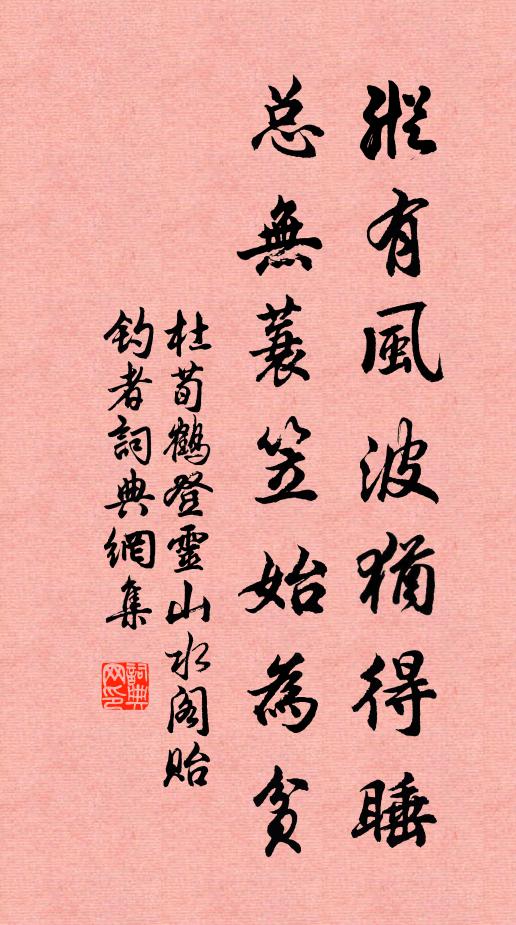 縱有風波猶得睡
总無蓑笠始為貧
杜荀鶴登靈山水阁貽
釣者詞典網集
詞典
网印